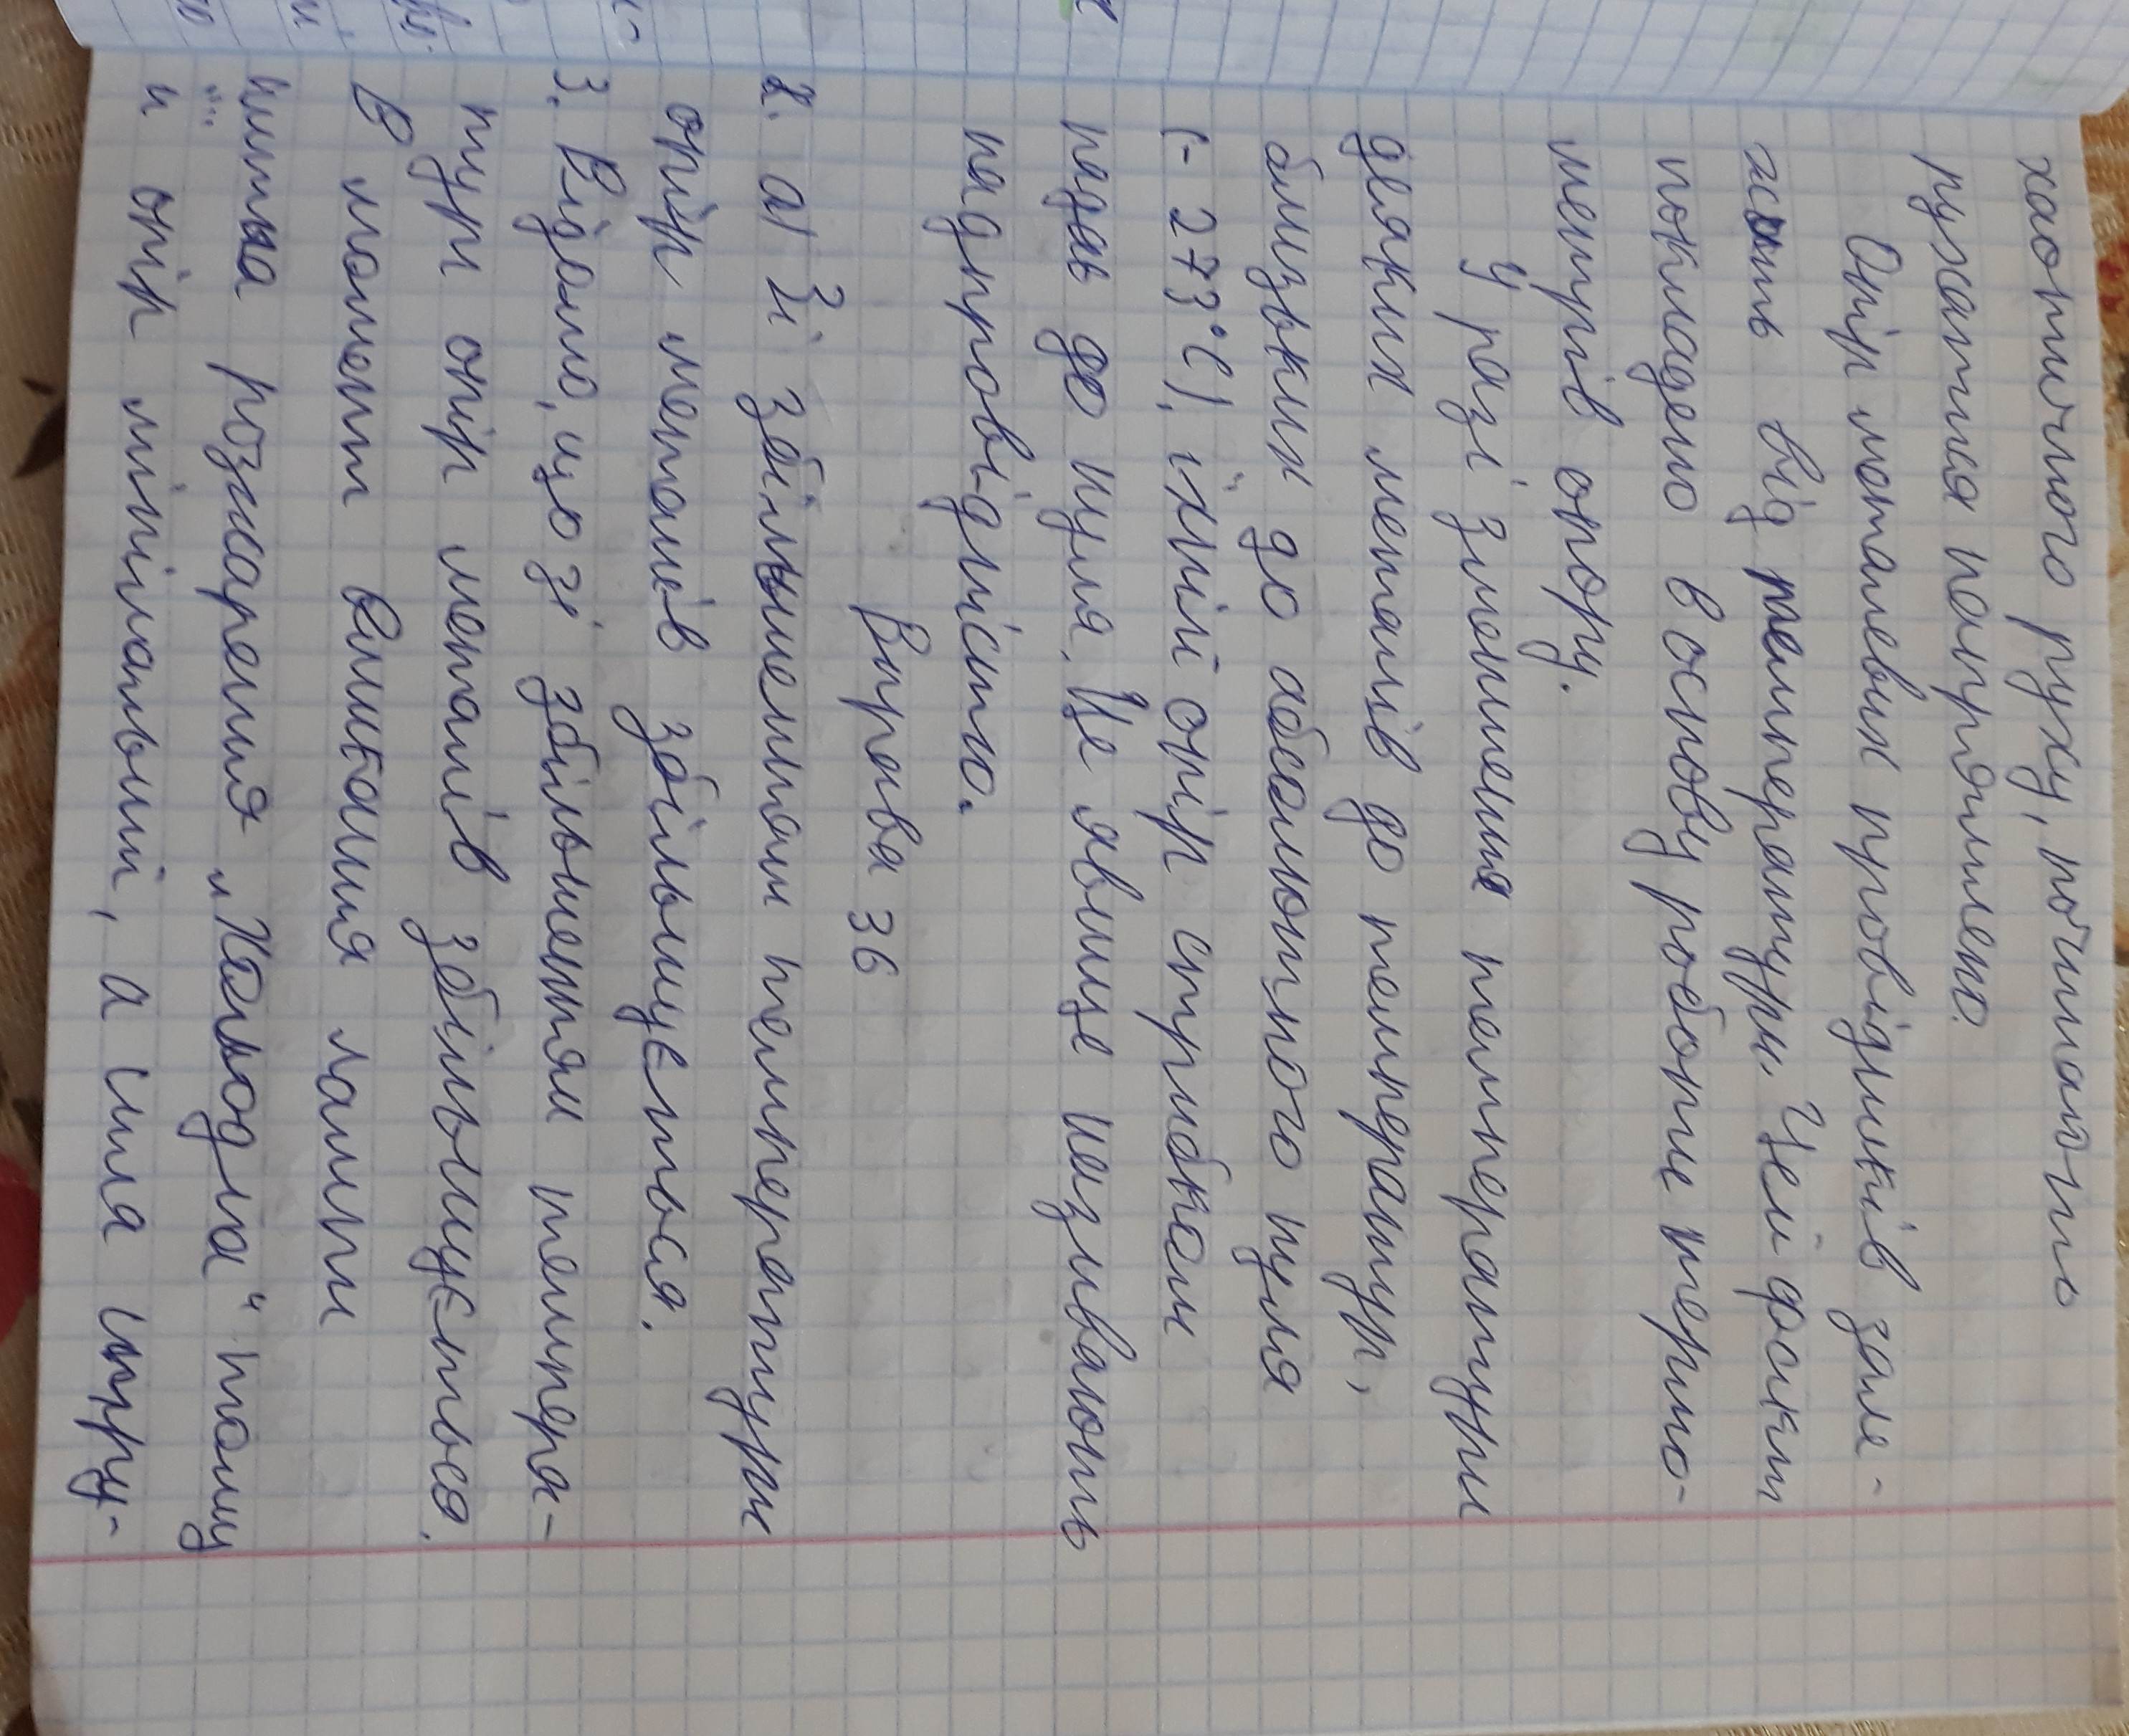 хаотичного руху, починають
рухатися напрямлено.
Опір металевих провідників зале-
жить від температури. Цей факт
покладено в основу роботи термо-
метрів опору.
У разі зменшення температури
деяких металів до температур,
близьких до абсолютного нуля
(-273°C), їхній опір стрибком
падає до нуля. Це явище називають
надпровідністю.
Вправа 36
2. а) Зі збільшенням температури
опір металів збільшується.
3. Відомо, що зі збільшенням темпера-
тури опір металів збільшується.
В момент вмикання лампи
нитка розжарення „холодна" тому
її опір мінімальний, а сила стру-